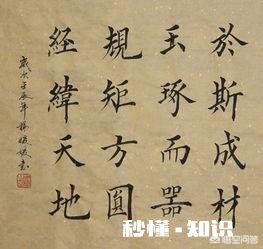 於斯成材
玉琢而器
規矩方圓
經緯天地
歲次壬辰年楊書
秒懂·知识
悟空问答